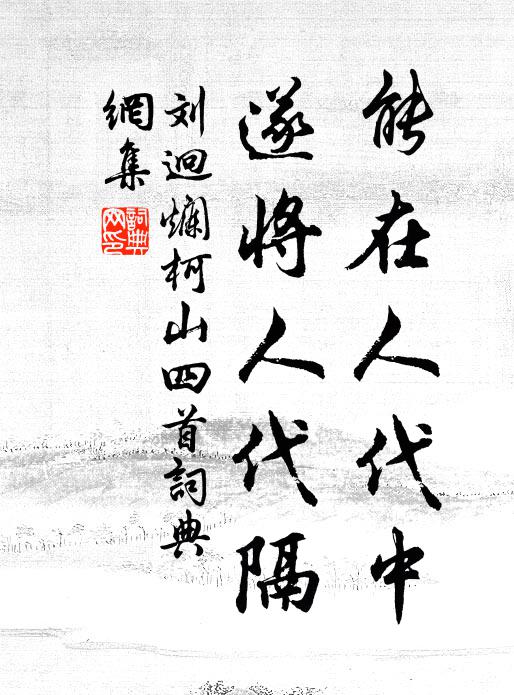 能在人代中
遂将人代隔
刘迥爛柯山四首詞典
網集
詞典
网印